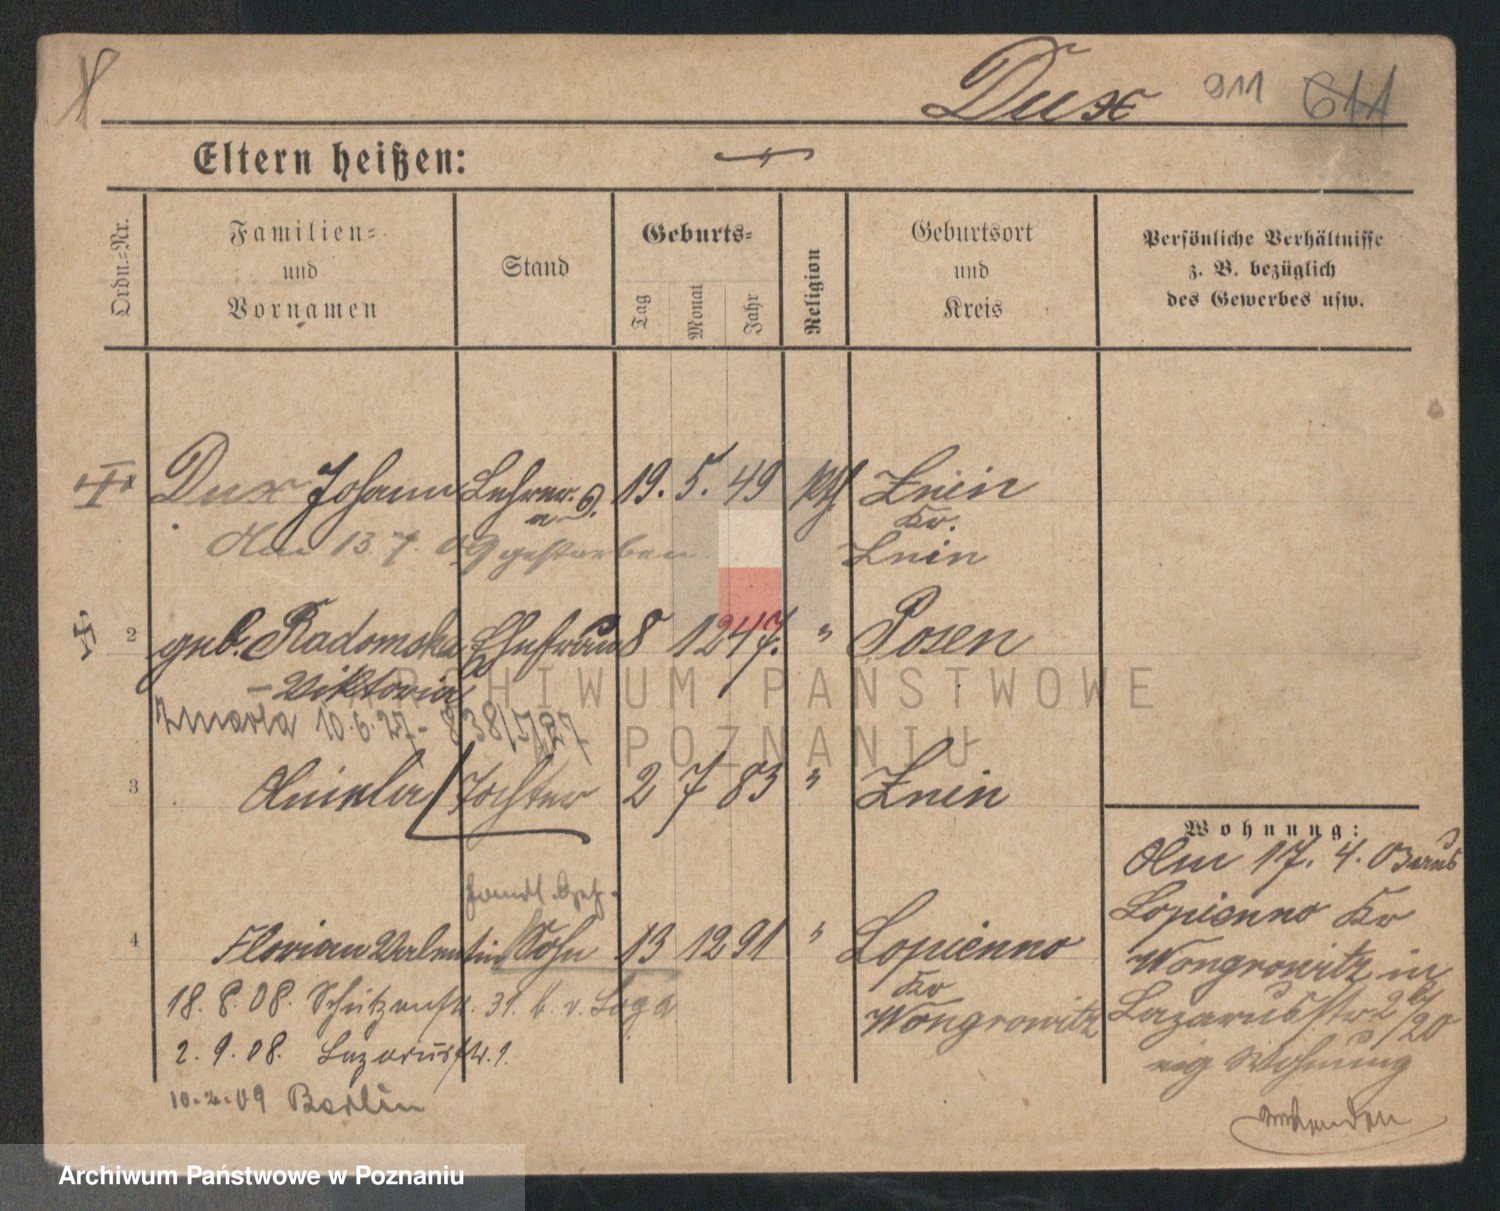 Dux 911 611
Eltern heißen:
Ordn.-Nr.
Familien-
und
Vornamen
Stand
Geburts-
Tag
Monat
Jahr
Religion
Geburtsort
und
Kreis
Persönliche Verhältnisse
z. B. bezüglich
des Gewerbes usw.
Dux Johann Lehrer a. D. 19. 5. 49 Znin
Kr.
Znin
Am 13. 7. 09 gestorben
2 geb. Radomska Ehefrau 8 12 47. " Posen
Viktoria
Zmarła 10.6.27 - 838/V/27
3 Tochter 2 7 83 " Znin
Wohnung:
Am 17. 4. 03 aus
Lopienno Kr
Wongrowitz in
Lazarusstr
Wohnung
4 Florian Valentin Sohn 13 12 91 " Lopienno
Kr
Wongrowitz
18. 8. 08. Schützenstr. 31. b. v. Loga
2. 9. 08. Lazarusstr. 9.
10.2.09 Berlin
ARCHIWUM PAŃSTWOWE
POZNANIU
Archiwum Państwowe w Poznaniu